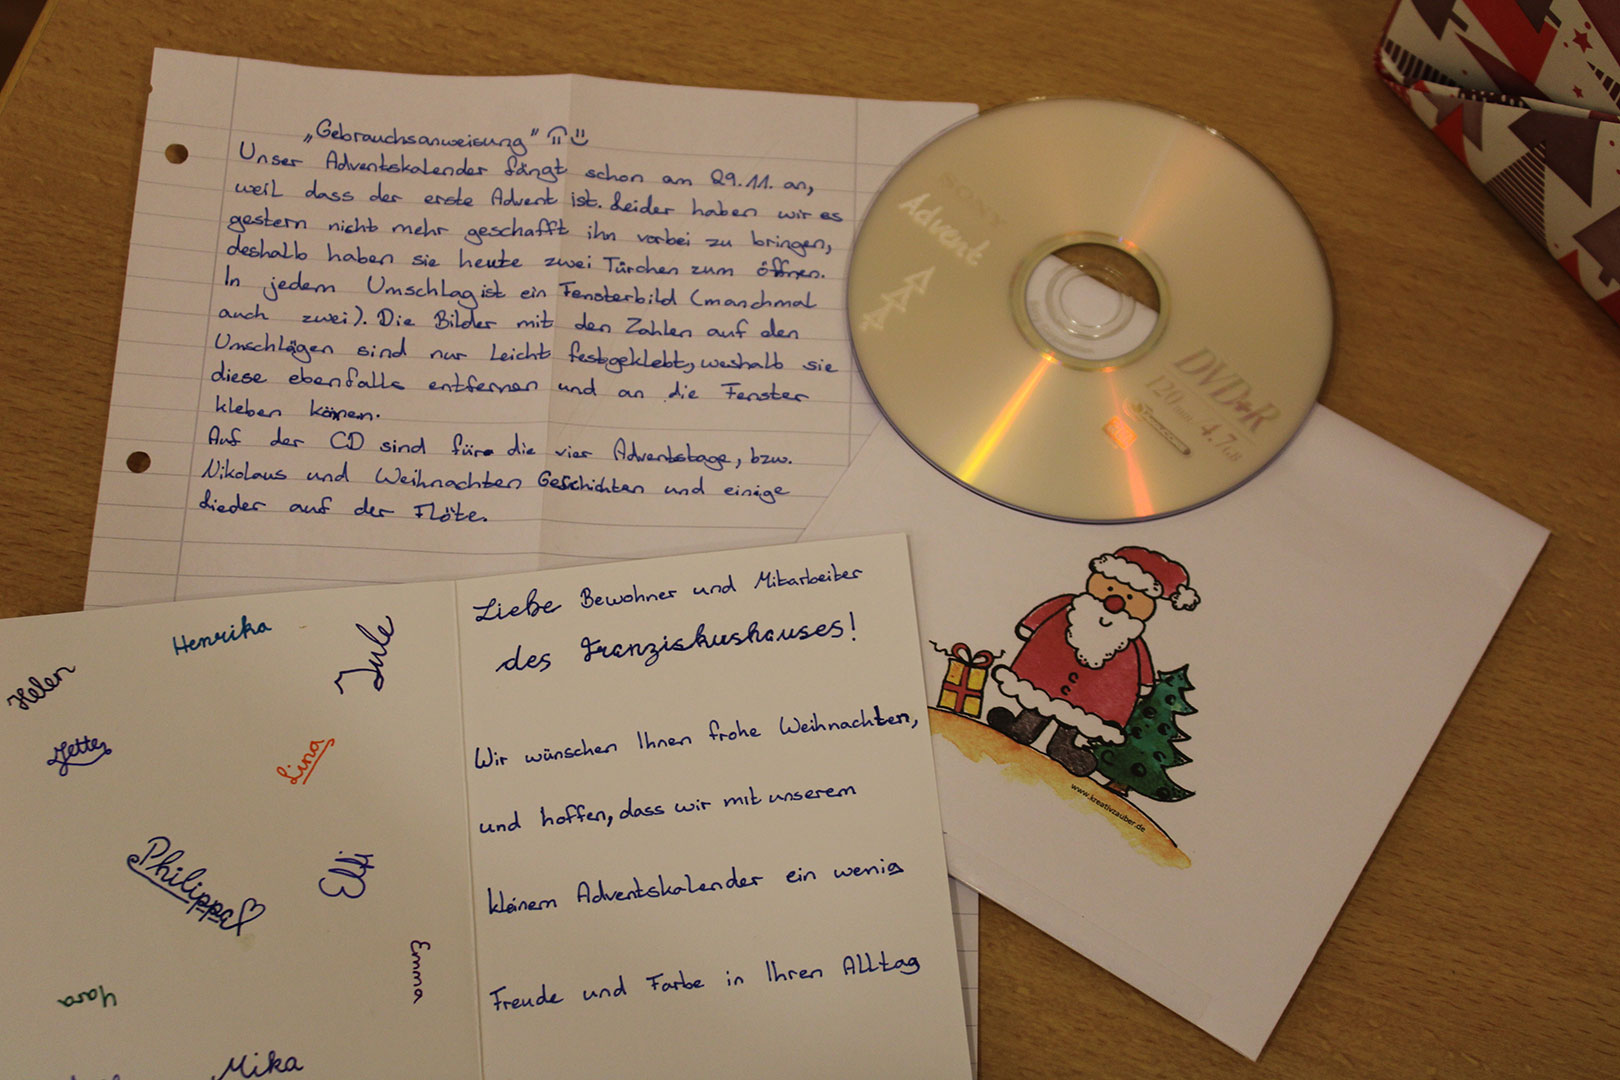 „Gebrauchsanweisung"
Unser Adventskalender fängt schon am 29.11. an,
weil dass der erste Advent ist. Leider haben wir es
gestern nicht mehr geschafft ihn vorbei zu bringen,
deshalb haben sie heute zwei Türchen zum öffnen.
In jedem Umschlag ist ein Fensterbild (manchmal
auch zwei). Die Bilder mit den Zahlen auf den
Umschlägen sind nur leicht festgeklebt, weshalb sie
diese ebenfalls entfernen und an die Fenster
kleben können.
Auf der CD sind für die vier Adventstage, bzw.
Nikolaus und Weihnachten Geschichten und einige
Lieder auf der Flöte.
Advent
DVD+R
120 min 4.7GB
www.kreativzauber.de
Liebe Bewohner und Mitarbeiter
des Franziskushauses!
Wir wünschen Ihnen frohe Weihnachten,
und hoffen, dass wir mit unserem
kleinem Adventskalender ein wenig
Freude und Farbe in Ihren Alltag
Henrika
Jule
Helen
Jette
Lina
Philippa
Elli
Emma
Yara
Mika